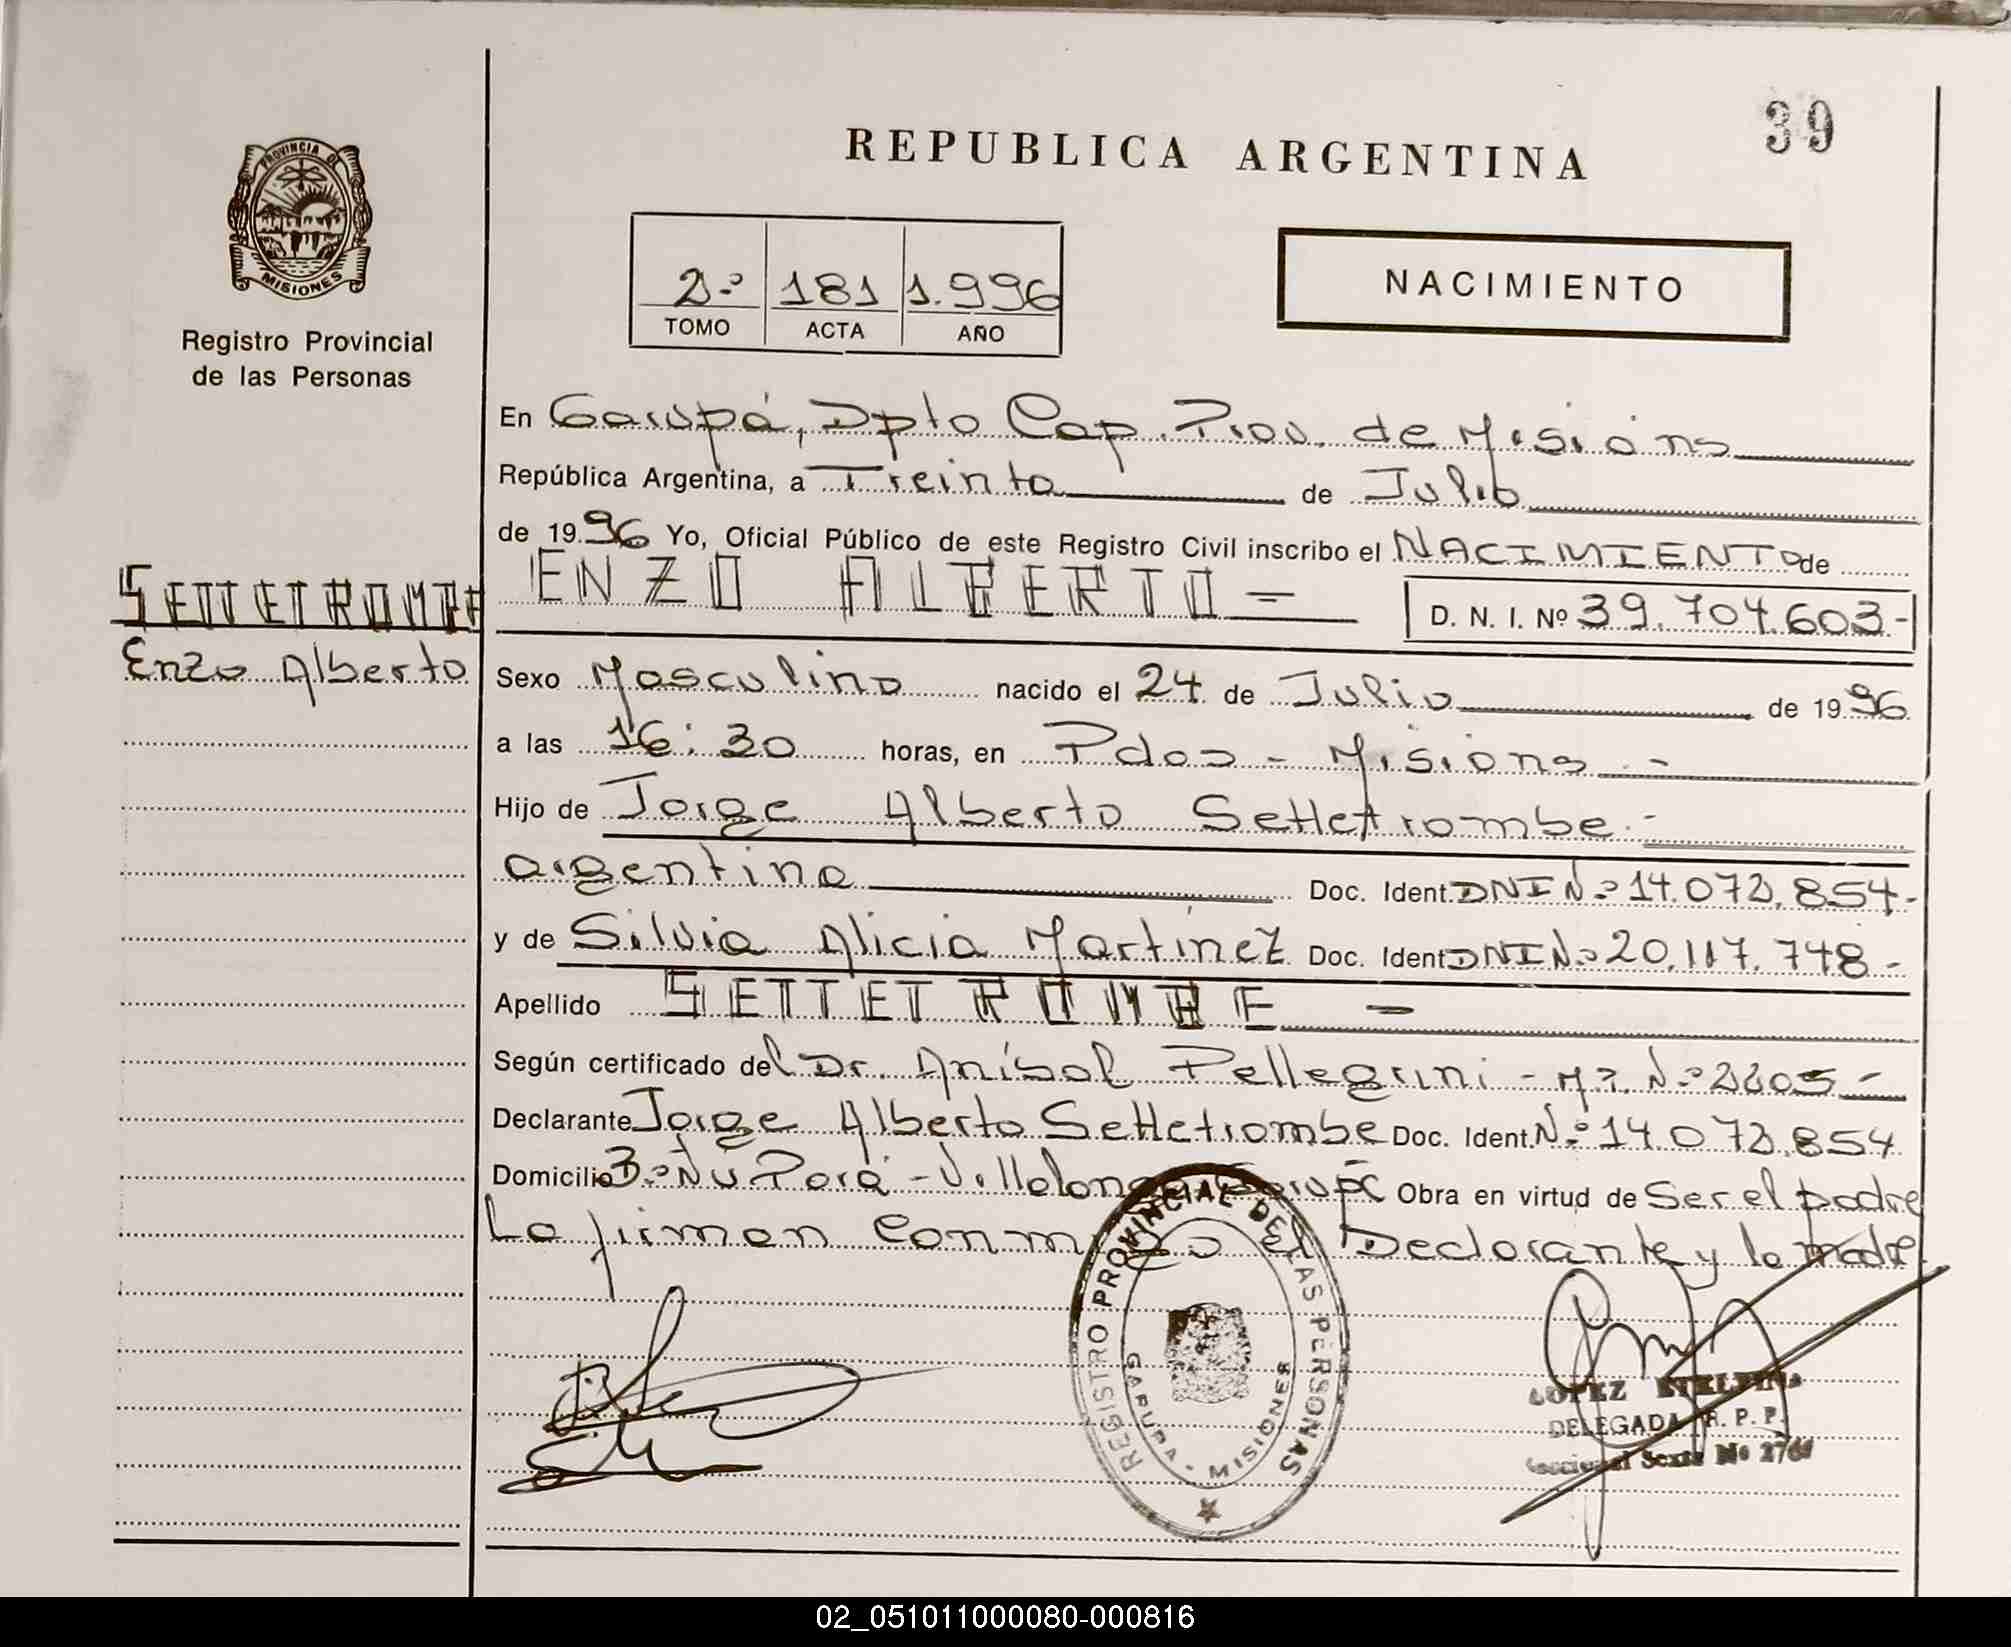 39
REPUBLICA ARGENTINA
PROVINCIA DE
MISIONES
Registro Provincial
de las Personas
2.º 181 1.996
TOMO ACTA AÑO
NACIMIENTO
En Garupá, Dpto Cap. Prov. de Misions
República Argentina, a Treinta de Julio
de 1996 Yo, Oficial Público de este Registro Civil inscribo el NACIMIENTO de
SETTETROMBE
Enzo Alberto
ENZO ALBERTO — D. N. I. Nº 39.704.603.-
Sexo Masculino nacido el 24 de Julio de 1996
a las 16:30 horas, en Pdas - Misions.-
Hijo de Jorge Alberto Settetrombe.-
argentino Doc. Ident. DNI N.º 14.072.854.-
y de Silvia Alicia Martínez Doc. Ident DNI N.º 20.117.748-
Apellido SETTETROMBE -
Según certificado del Dr. Aníbal Pellegrini - M.P. N.º 2205-
Declarante Jorge Alberto Settetrombe Doc. Ident. N.º 14.072.854
Domicilio B.º Ñu Porá - Villalonga Garupá Obra en virtud de Ser el padre
La firman Conmigo El Declarante y la madre
REGISTRO PROVINCIAL DE LAS PERSONAS
GARUPA - MISIONES
LOPEZ
DELEGADA R. P. P.
Seccional Sexta Nº
02_051011000080-000816